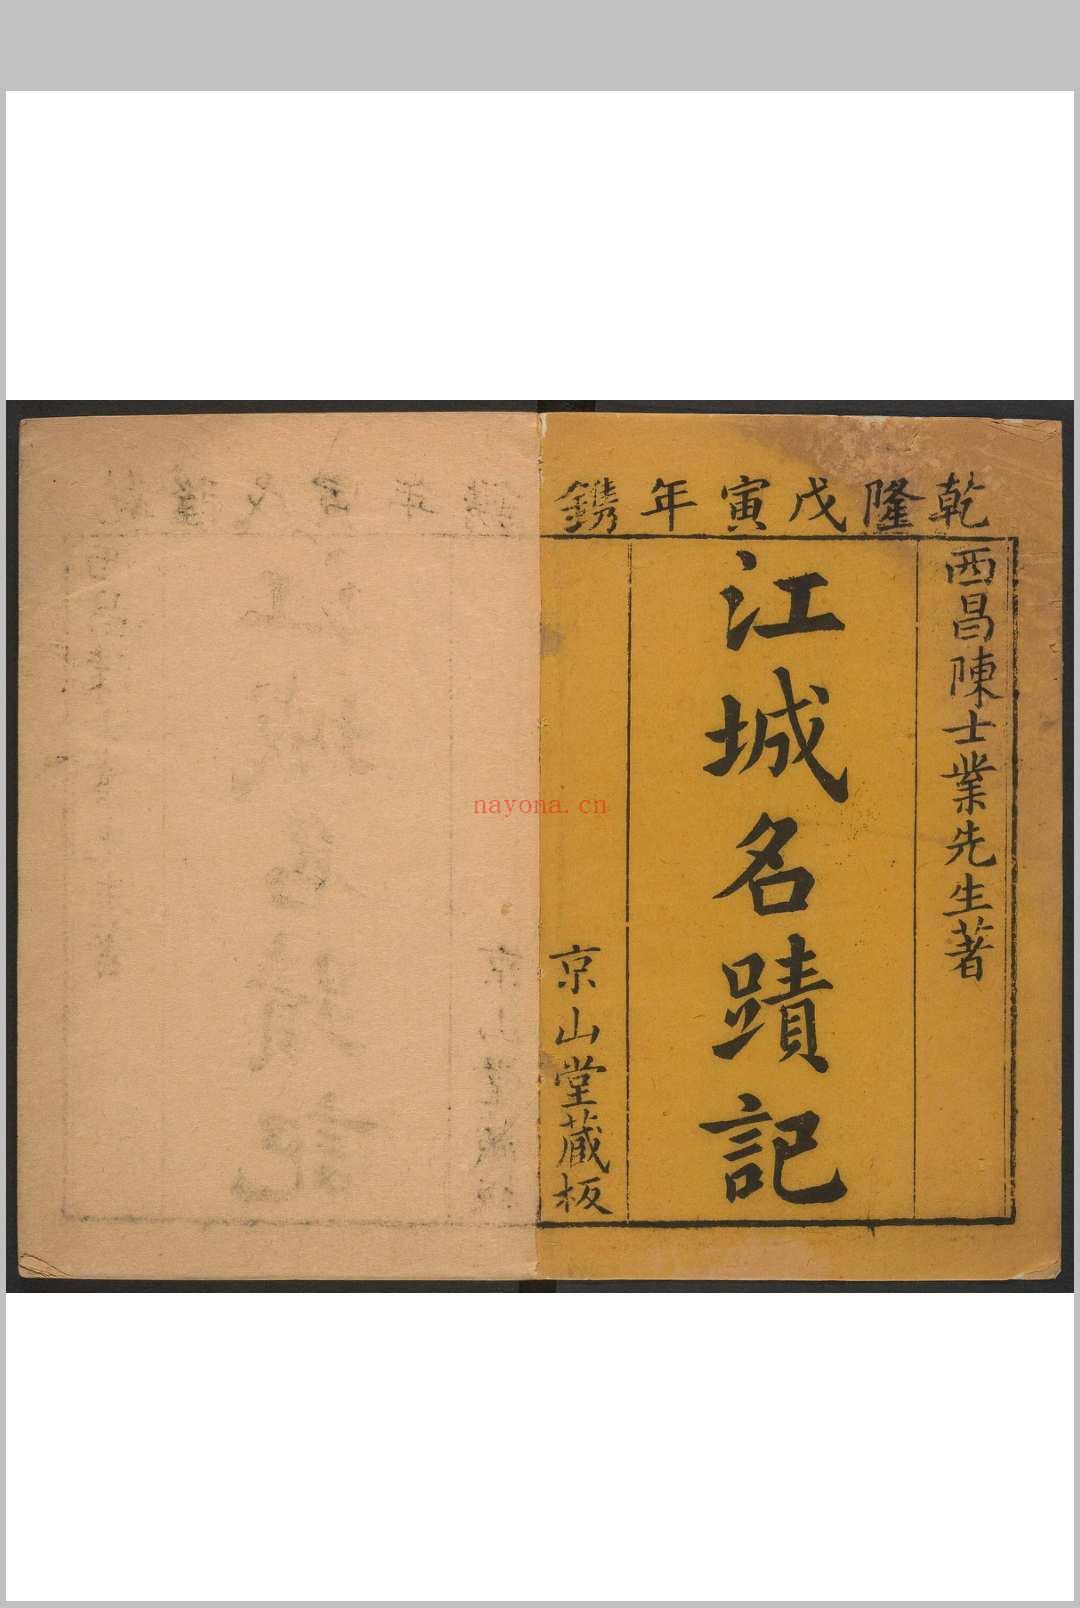 乾隆戊寅年鐫
西昌陳士業先生著
江城名蹟記
京山堂蔵板
nayona.cn